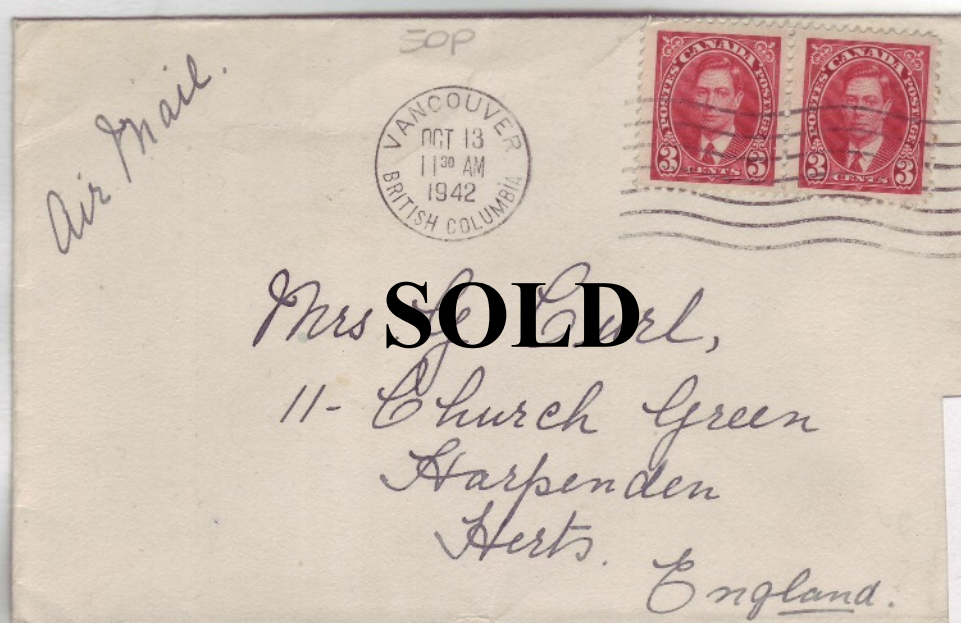 50P
Air Mail.
VANCOUVER
OCT 13
11 30 AM
1942
BRITISH COLUMBIA
POSTES CANADA POSTAGE
3 CENTS 3
POSTES CANADA POSTAGE
3 CENTS 3
Mrs Curl,
SOLD
11- Church Green
Harpenden
Herts.
England.